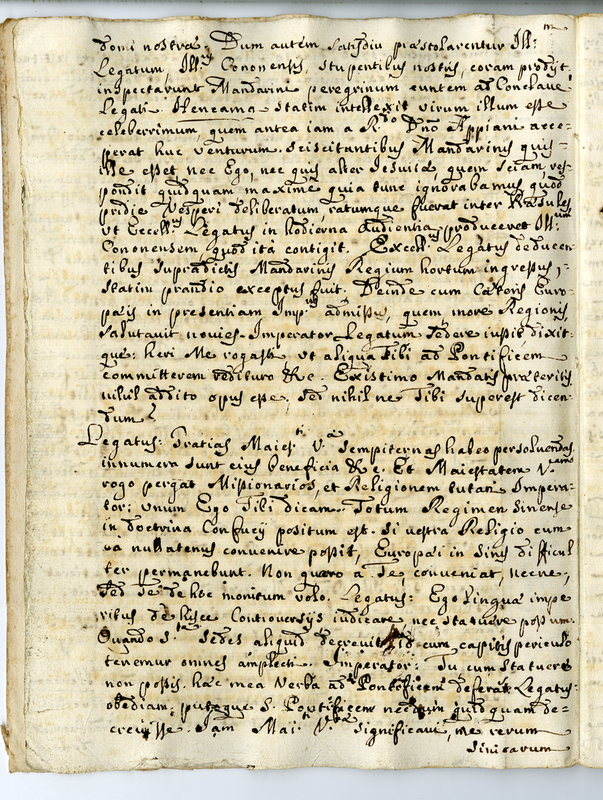 domi nostra. Dum autem satisdiu praestolarentur Ill:
Legatum, Ill. Cononensis, stupentibus nostris, coram prodijt,
inspectarunt Mandarini peregrinum euntem ad Conclave
Legati. Henkama statim intellexit virum illum esse
celeberrimum, quem antea iam a R.do Dno Appiani acce-
perat huc venturum. Sciscitantibus Mandarinis quis-
ille esset, nec Ego, nec quis alter Jesuita quem sciam, res-
pondit quidquam maximè quia tunc ignorabamus quod
pridie Vesperi deliberatum, ratumque fuerat inter Praesules
ut Excell. Legatus in hodierna Audientia produceret Ill.
Cononensem quod ità contigit. Excell. Legatus deducen
tibus supradictis Mandarinis Regium hortum ingressus,
statim prandio exceptus fuit. Deinde cum Caeteris Euro-
paeis in presentiam Imp. admissus, quem more Regionis
salutavit novies. Imperator Legatum sedere iussit, dixit-
que: heri Me rogasti ut aliqua Tibi ad Pontificem
committerem redituro &c. Existimo Mandatis praeteritis
nihil addito opus esse, sed nihil ne Tibi superest dicen-
dum?
Legatus: Gratias Maies.ti V.ae sempiternas habeo persolvendas,
innumera sunt eius beneficia &c. Et Maiestatem V.am
rogo pergat Missionarios, et Religionem tutari Impera-
tor: unum Ego Tibi dicam. Totum Regimen Sinense
in doctrina Confucij positum est. Si vestra Religio cum
ea nullatenus convenire possit, Europaei in Sinis difficul
ter permanebunt. Non quaero a Te conveniat, necne,
sed Te de hoc monitum volo. Legatus: Ego linguae impe
ritus de hisce Controversijs iudicare, nec statuere possum.
Quando S.ta Sedes aliquid decrevit, id cum capitis periculo
tenemur omnes amplecti. Imperator: Tu cum statuere
non possis, haec mea Verba ad Pontificem deferas Legatus-
obediam, putoque S. Pontificem necdum quidquam de-
crevisse. Jam Mai.ti V.ae significavi, me rerum
Sinicarum